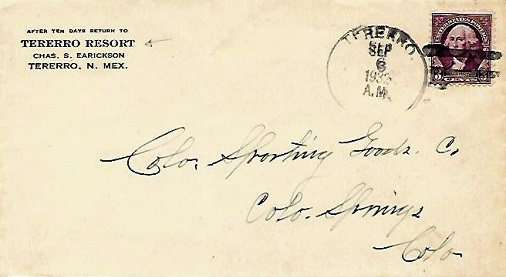 AFTER TEN DAYS RETURN TO
TERERRO RESORT
CHAS. S. EARICKSON
TERERRO, N. MEX.
TERERRO,
SEP
6
A.M.
UNITED STATES POSTAGE
3 CENTS 3
Colo. Sporting Goods. Co
Colo. Springs
Colo